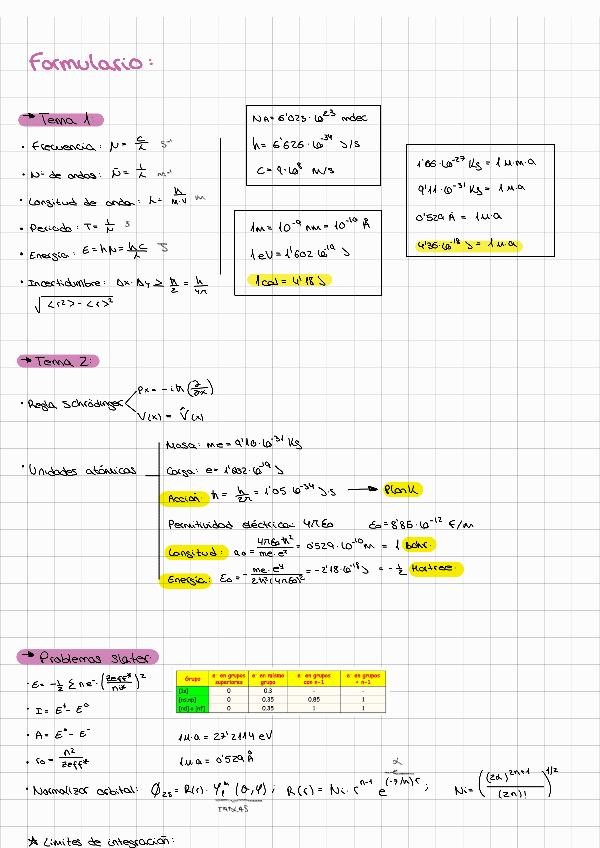 Formulario:
→ Tema 1:
• Frecuencia: ν = c/λ s⁻¹
• Nº de ondas: ν̄ = 1/λ m⁻¹
• Longitud de onda: λ = h/m·v m
• Periodo: T = 1/ν s
• Energía: E = hν = hc/λ J
• Incertidumbre: Δx·Δy ≥ ħ/2 = h/4π
√<r²> - <r>²
NA = 6'023·10²³
h = 6'626·10⁻³⁴ J/s
C = 9·10⁸ m/s
1m = 10⁻⁹ nm = 10⁻¹⁰ Å
1eV = 1'602·10⁻¹⁹ J
1cal = 4'18 J
1'66·10⁻²⁷ Kg = 1 u.m.a
9'11·10⁻³¹ Kg = 1u.a
0'529 Å = 1u.a
4'36·10⁻¹⁸ J = 1u.a
→ Tema 2:
• Regla Schrödinger
Px = -iħ(∂/∂x)
V(x) = V̂(x)
• Unidades atómicas
Masa: me = 9'10·10⁻³¹ Kg
Carga: e = 1'602·10⁻¹⁹ J
Acción: ħ = h/2π = 1'05·10⁻³⁴ J·s → Plank
Permitividad eléctrica: 4πε₀ ε₀ = 8'85·10⁻¹² F/m
Longitud: a₀ = 4πε₀ħ²/me·e² = 0'529·10⁻¹⁰ m = 1 Bohr.
Energía: E₀ = - me·e⁴/2ħ²(4πε₀)² = -2'18·10⁻¹⁸ J = -½ Hartree.
→ Problemas slater
• E = -½ Σ ne⁻·(zeff*/n*)²
• I = E⁺ - E⁰
• A = E⁰ - E⁻
• r₀ = n²/zeff*
Grupo e⁻ en grupos superiores e⁻ en mismo grupo e⁻ en grupos con n-1 e⁻ en grupos < n-1
[1s] 0 0.3 - -
[ns,np] 0 0.35 0.85 1
[nd] o [nf] 0 0.35 1 1
1u.a = 27'2114 eV
1u.a = 0'529 Å
• Normalizar orbital: Φ₂s = R(r)·Y (θ,φ); R(r) = Ni·rⁿ⁻¹ e^(-z/n)r; Ni = ((2α)²ⁿ⁺¹/(2n)!)^1/2
α
TABLAS
★ Límites de integración: